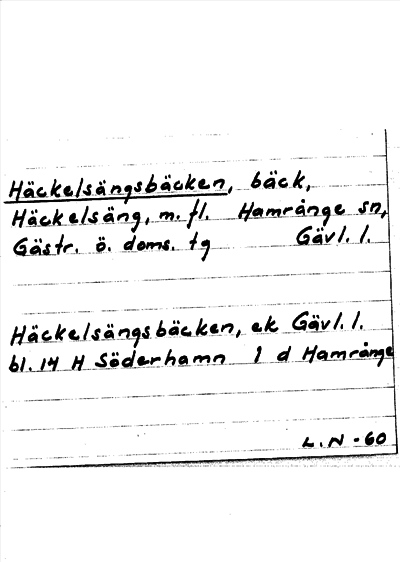 Häckelsängsbäcken, bäck,
Häckelsäng, m. fl. Hamrånge sn,
Gästr. ö. doms. tg Gävl. l.
Häckelsängsbäcken, ek Gävl. l.
bl. 14 H Söderhamn 1 d Hamrånge
L. N - 60